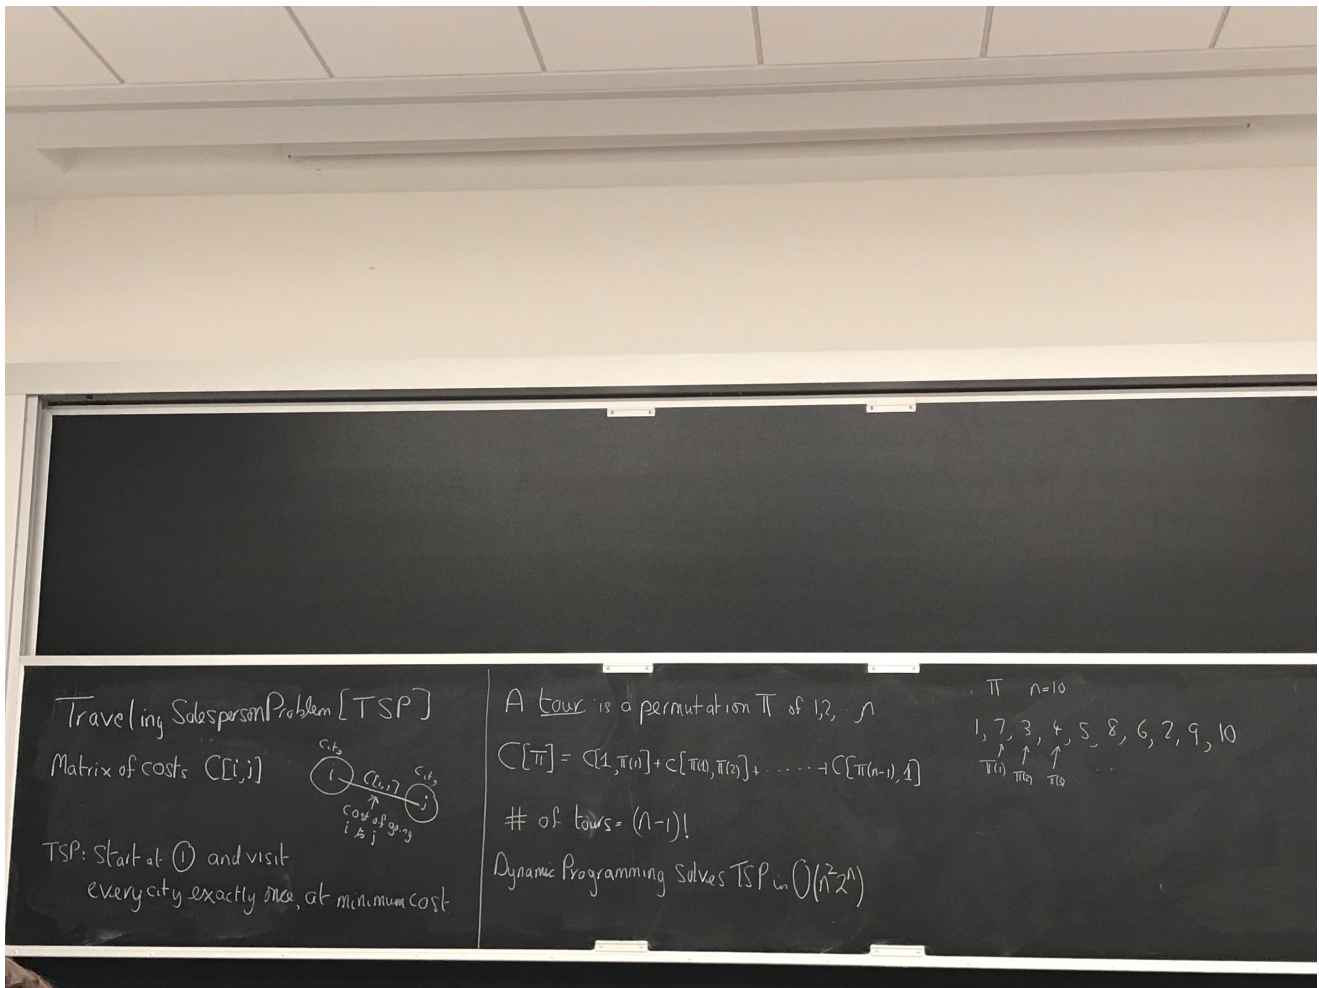 Traveling Salesperson Problem [TSP]
Matrix of costs C[i,j]
City
i
C[i,j]
City
j
cost of going
i to j
TSP: Start at ① and visit
every city exactly once, at minimum cost
A tour is a permutation π of 1,2, .. n
C[π] = C[1,π(1)] + C[π(1),π(2)] + ...... + C[π(n-1),1]
# of tours = (n-1)!
Dynamic Programming Solves TSP in O(n²2ⁿ)
π n=10
1, 7, 3, 4, 5, 8, 6, 2, 9, 10
π(1) π(2) π(3) ...